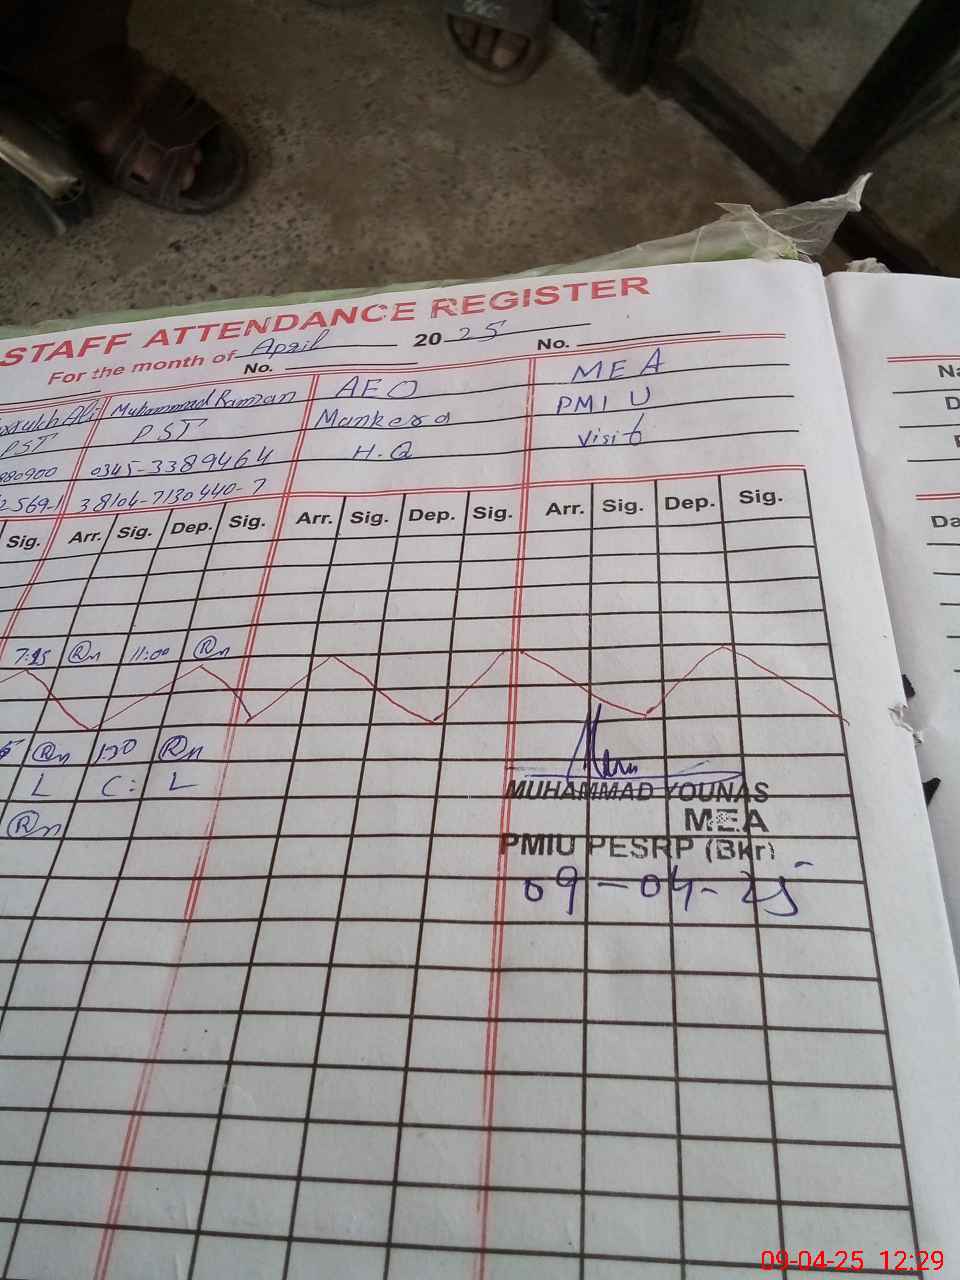 STAFF ATTENDANCE REGISTER
For the month of April 2025
No. No.
Ali Muhammad Ramzan AEO MEA
PST PST Mankera PMIU
880900 0345-3389464 H.Q Visit
2569-1 38104-7130440-7
Sig. Arr. Sig. Dep. Sig. Arr. Sig. Dep. Sig. Arr. Sig. Dep. Sig.
Rn 11:00 Rn
Rn Rn
L C: L
Rn
MUHAMMAD YOUNAS
MEA
PMIU PESRP (Bkr)
09-04-25
Na
D
Da
09-04-25 12:29